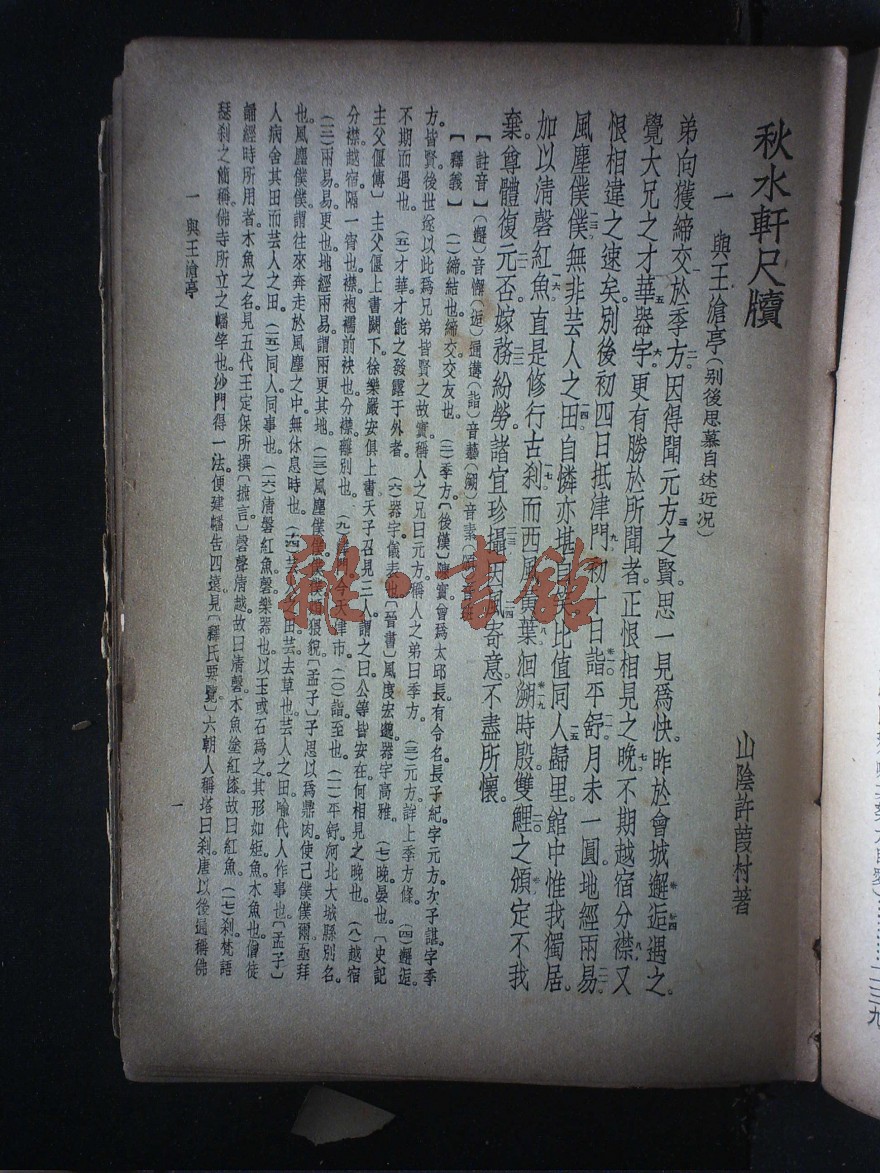 秋水軒尺牘
山陰許葭村著
一　與王滄亭（别後思慕自述近況）
弟向獲締交於季方。因得聞元方之賢。思一見爲快。昨於會城邂逅遇之。
覺大兄之才華器宇更有勝於所聞者。正恨相見之晚。不期越宿分襟又
恨相違之速矣。別後初四日抵津門。初十日詣平舒。月未一圓。地經兩易。
風塵僕僕。無非芸人之田。自憐亦堪自笑。比值同人歸里。館中惟我獨居。
加以清磬紅魚。直是修行古刹。而西風黃葉。洄溯時殷。雙鯉之頒。定不我
棄。尊體復元否。嫁務紛勞。諸宜珍攝。因風寄意。不盡所懷。
【註音】（邂）音懈（逅）遘（詣）音藝（溯）音素
【釋義】（一）締結也。締交交友也。（二）季方。〔後漢〕陳實曾爲太邱長。有令名。長子紀字元方。次子諶字季
方。皆賢。後世遂以此爲兄弟皆賢之故實。稱人之兄曰元方。稱人之弟曰季方。（三）元方詳上季方條。（四）邂逅。
不期而遇也。（五）才華。才能之發露于外者。（六）器宇儀表也。〔晉書〕風度宏邈。器宇高雅。（七）晚晏也。〔史記
主父偃傳〕主父偃上書闕下。徐樂嚴安俱上書。天子召見三人。謂之曰。公等皆安在。何相見之晚也。（八）越宿
分襟越宿。隔一宵也。襟袍襦前袂也。分襟。離別也。（九）津門今天津市。（一〇）詣至也。（一一）平舒。河北大城縣別名。
（一二）兩易。易更也。地經兩易。謂兩更其地。（一三）風塵僕僕。僕僕煩猥貌。〔孟子〕子思以爲鼎肉。使己僕僕爾亟拜
也。風塵僕僕。謂往來奔走於風塵之中。無休息時也。（一四）芸人之田。芸去草也。芸人之田。喻代人作事也。〔孟子〕
人病舍其田而芸人之田。（一五）同人。同事也。（一六）清磬紅魚。磬樂器也。以玉或石爲之。其形如矩。魚木魚也。僧徒
誦經時所用者。木魚之名。見五代王定保所撰〔摭言〕磬聲清越。故曰清磬。木魚塗紅漆。故曰紅魚。（一七）刹梵語
瑟刹之簡稱。佛寺所立之幡竿也。沙門得一法。便建幡告四遠。見〔釋氏要覽〕六朝人稱塔曰刹。唐以後通稱佛
一　與王滄亭
一
雜·書館